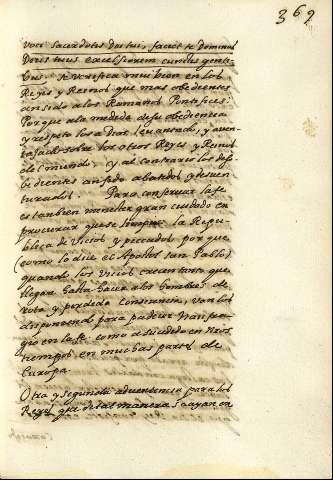 369
voce sacerdotes Dei tui, faciet te Dominus
Deus tuus excelsiorem cunctis genti-
bus. Se verifica muibien en los
Reyes y Reinos que mas obedientes
an sido a los Romanos Pontifices:
Porque a la medida de su obediencia
y respeto los a Dios levantado, y aven-
tajado sobre los otros Reyes y Reinos
del mundo. y al contrario los deso-
bedientes an sido abatidos y desven-
turados. Para conservar la fe
es tambien menester gran cuidado en
procurar que se limpie la Repu-
blica de vicios y peccados, porque
(como lo dice el Apostol san Pablo)
quando los vicios crecen tanto que
llegan hasta hacer a los hombres de
rota y perdida consciencia, van los
disponiendo para padecer naufra-
gio en la fe como a sucedido en nros
tiempos en muchas partes de
Europa.
Otra y segunda advertencia para los
Reyes que de tal manera se ayan en